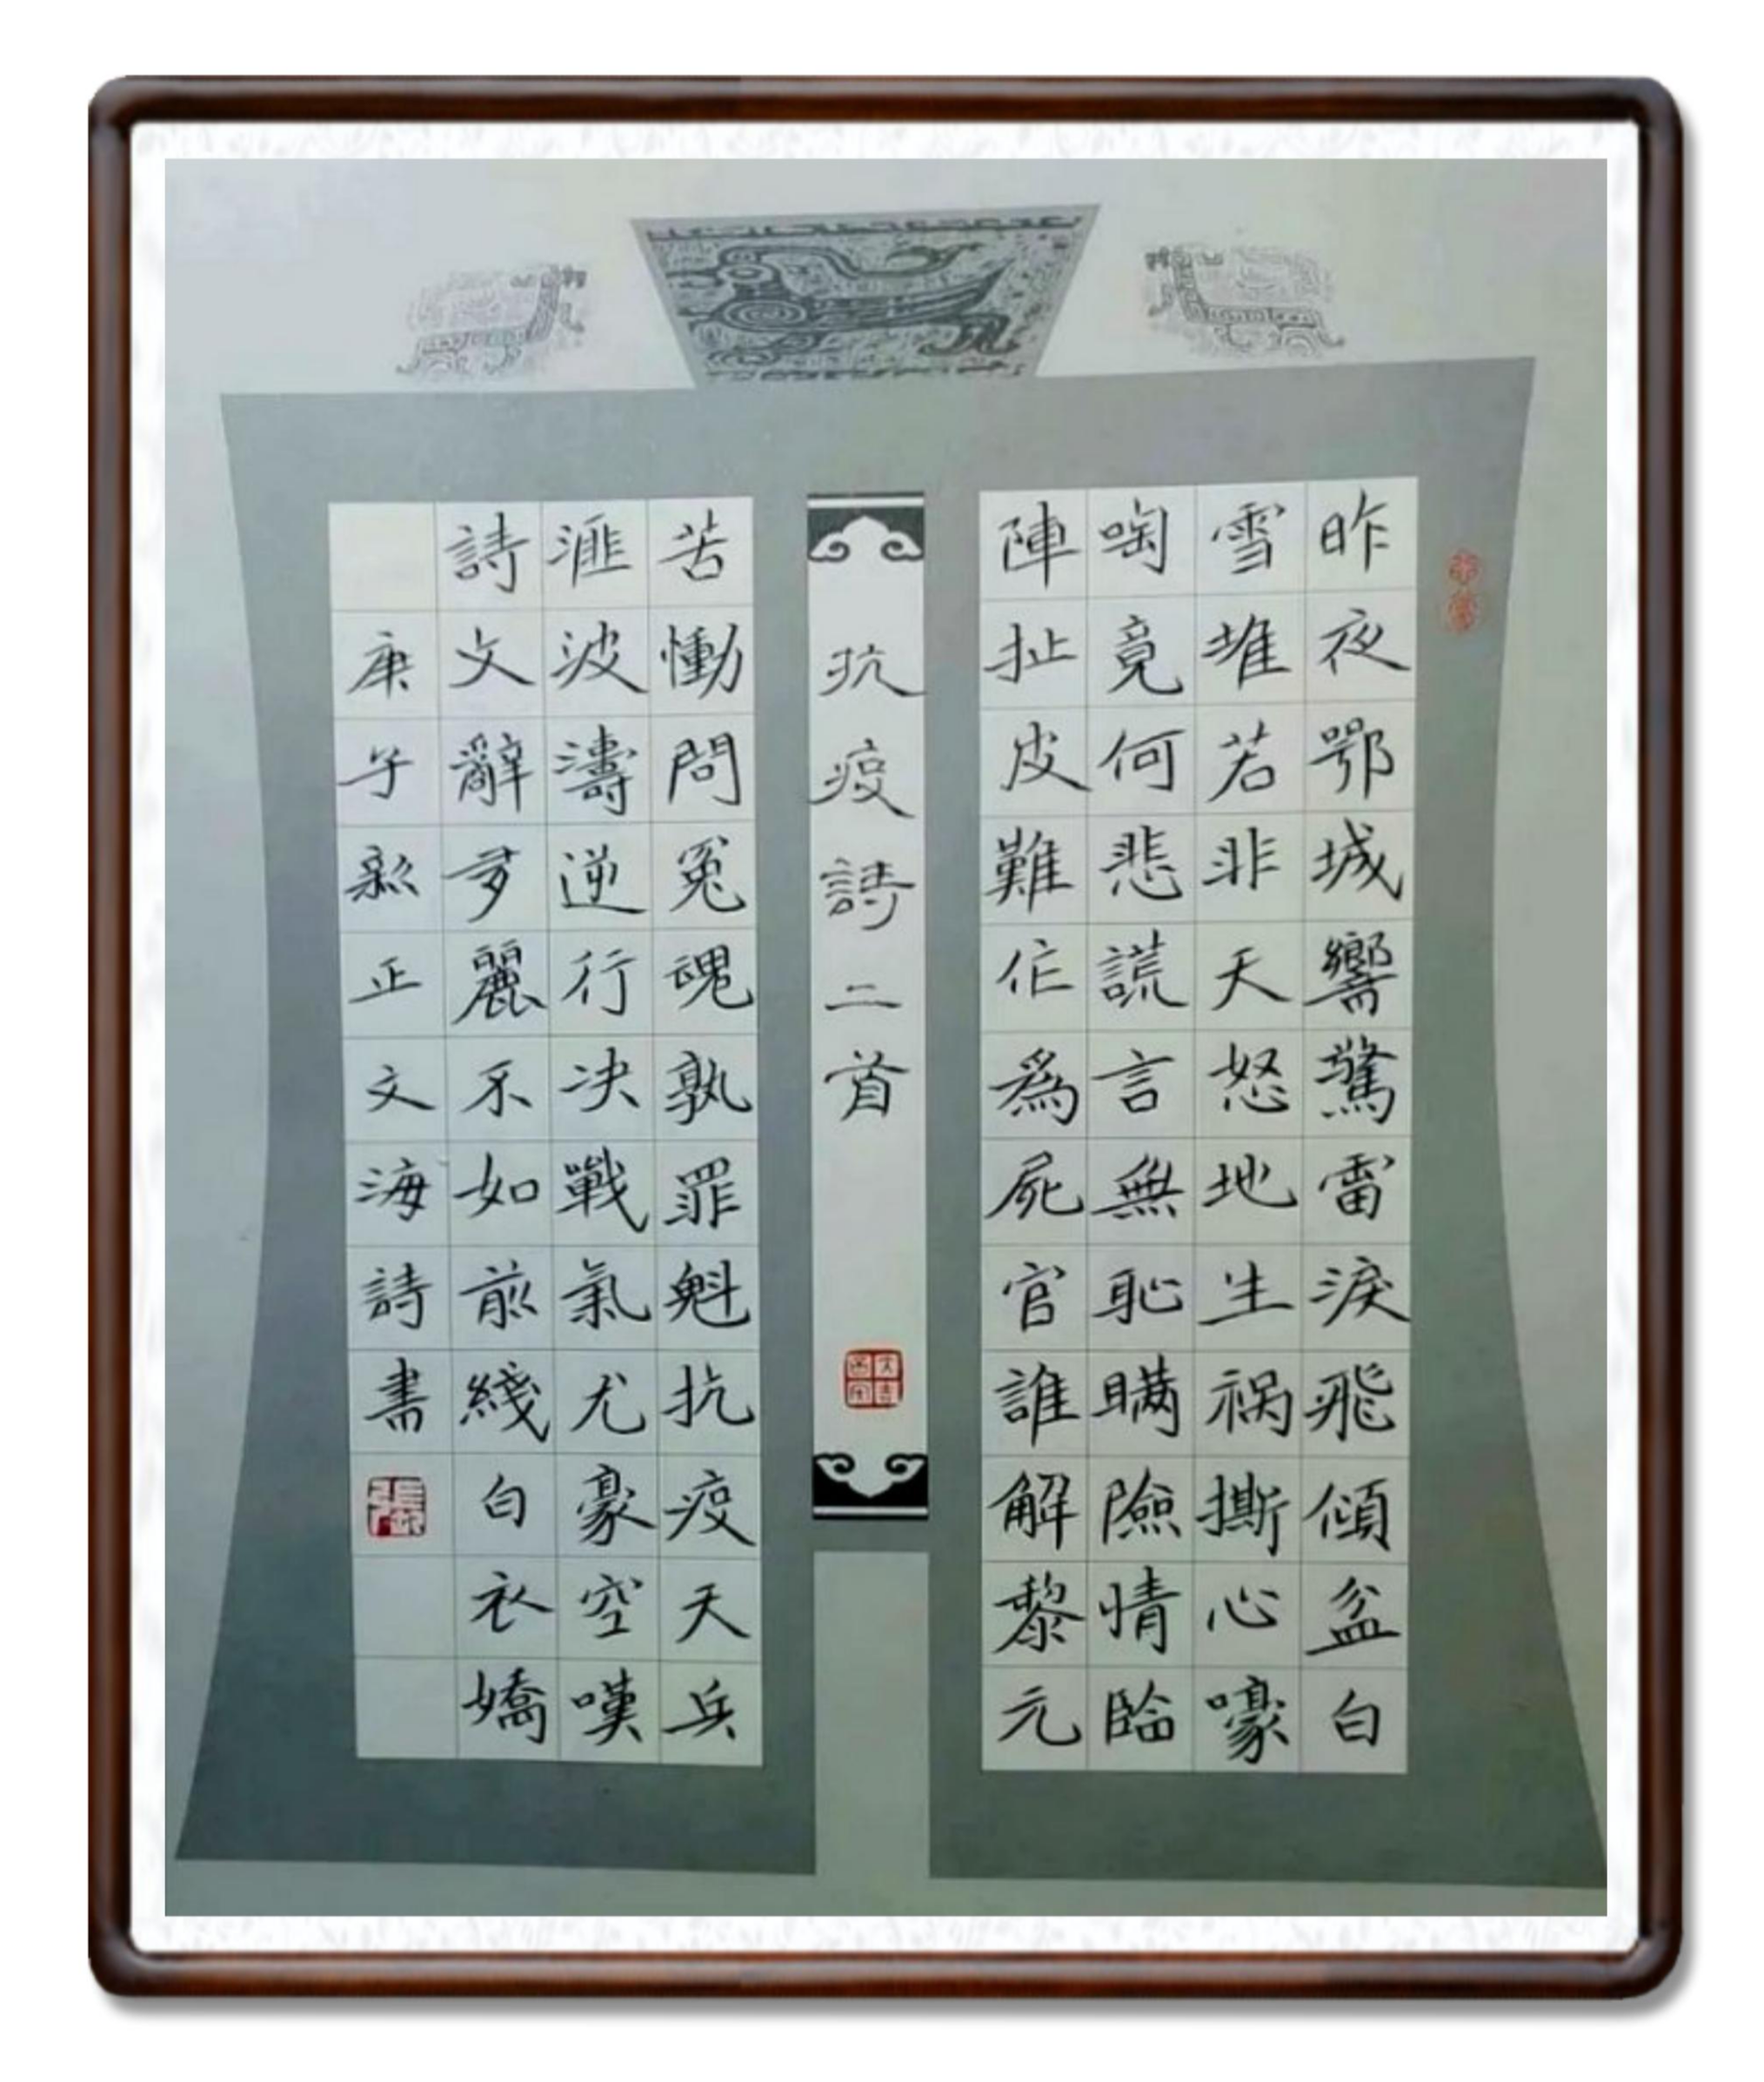 昨夜鄂城響驚雷淚飛傾盆白
雪堆若非天怒地生祸撕心嚎
啕竟何悲謊言無恥瞞險情臨
陣扯皮難作為屍官誰解黎元
抗疫詩二首
苦慟問冤魂孰罪魁抗疫天兵
滙波濤逆行決戰氣尤豪空嘆
詩文辭多麗不如前綫白衣嬌
庚子新正文海詩書